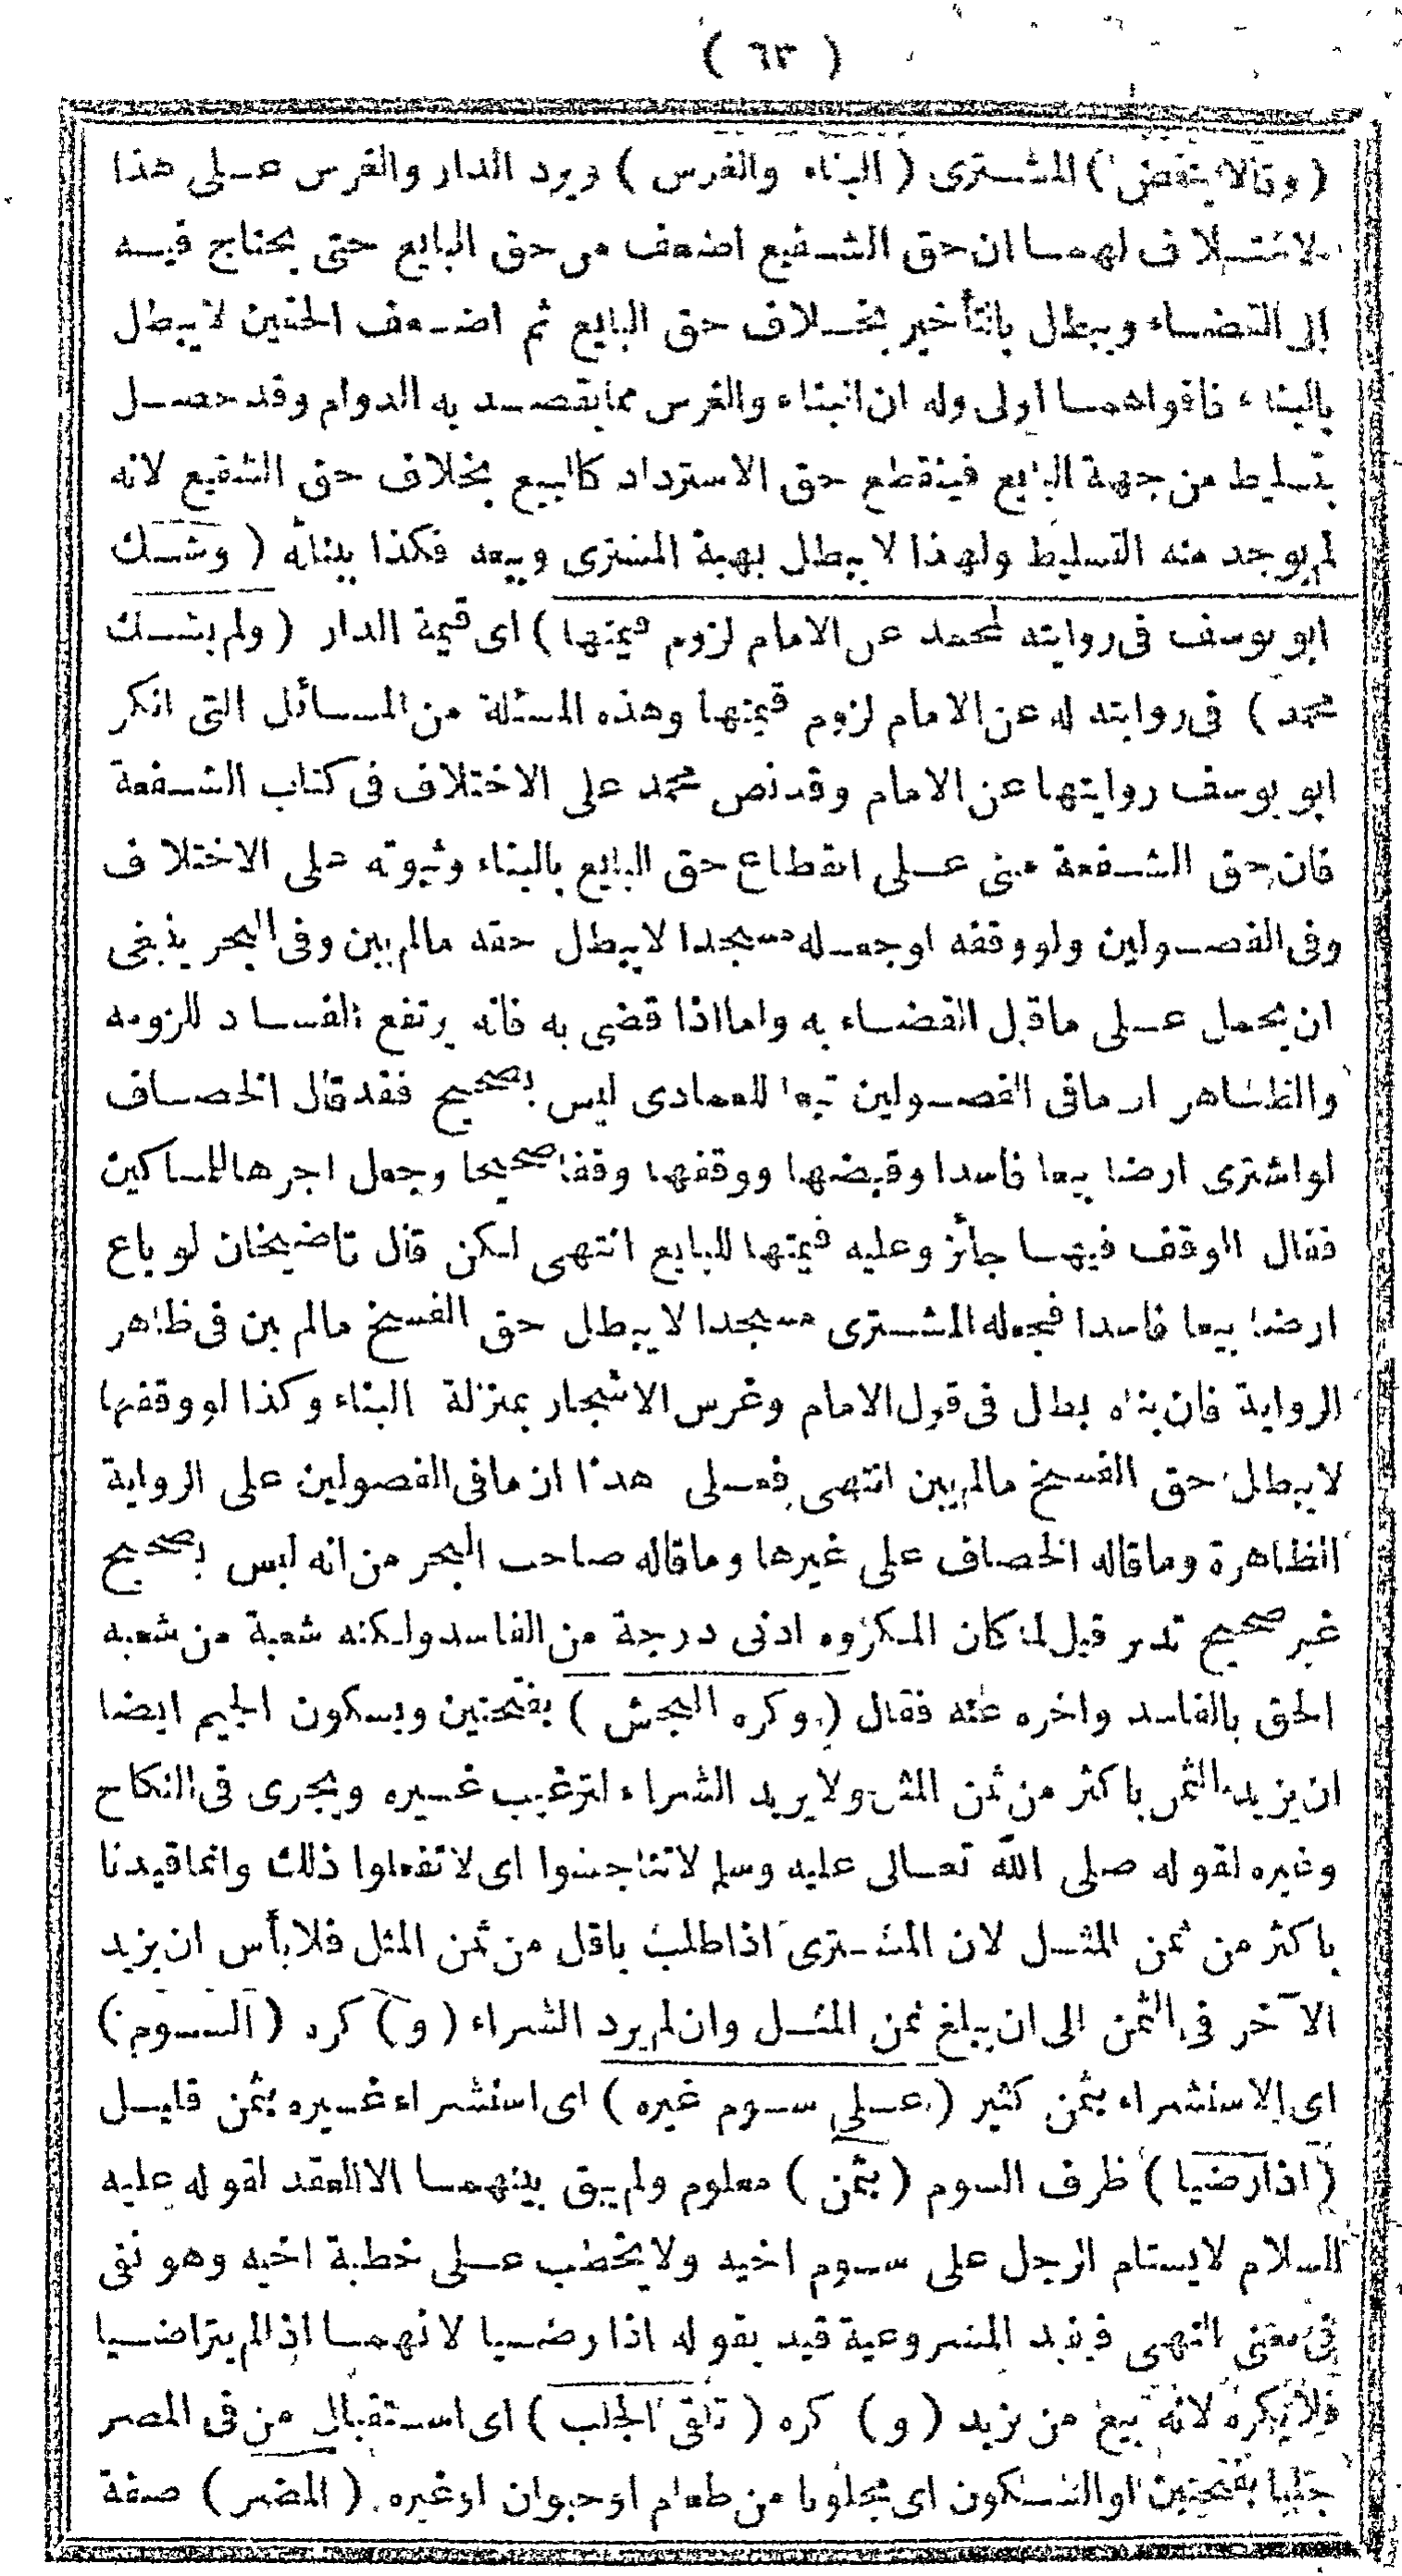 ( ٦٣ )
( وقالا ينقض ) المشترى ( البناء والغرس ) ويرد الدار والغرس على هذا
الاختلاف لهما ان حق الشفيع اضعف من حق البايع حتى يحتاج فيه
الى القضاء ويبطل بالتأخير بخلاف حق البايع ثم اضعف الحقين لا يبطل
بالبناء فاقواهما اولى وله ان البناء والغرس مما يقصد به الدوام وقد حصل
بتسليط من جهة البايع فينقطع حق الاسترداد كالبيع بخلاف حق الشفيع لانه
لم يوجد منه التسليط ولهذا لا يبطل بهبة المشترى وبيعه فكذا بنائه ( وشك
ابو يوسف فى روايته لمحمد عن الامام لزوم قيمتها ) اى قيمة الدار ( ولم يشك
محمد ) فى روايته له عن الامام لزوم قيمتها وهذه المسئلة من المسائل التى انكر
ابو يوسف روايتها عن الامام وقد نص محمد على الاختلاف فى كتاب الشفعة
فان حق الشفعة مبنى على انقطاع حق البايع بالبناء وثبوته على الاختلاف
وفى الفصولين ولو وقفه او جعله مسجدا لا يبطل حقه مالم يبن وفى البحر ينبغى
ان يحمل على ما قبل القضاء به واما اذا قضى به فانه يرتفع الفساد للزومه
والظاهر ان مافى الفصولين تبعا للعمادى ليس بصحيح فقد قال الخصاف
لو اشترى ارضا بيعا فاسدا وقبضها ووقفها وقفا صحيحا وجعل اجرها للمساكين
فقال الوقف فيها جائز وعليه قيمتها للبايع انتهى لكن قال قاضيخان لو باع
ارضا بيعا فاسدا فجعله المشترى مسجدا لا يبطل حق الفسخ مالم يبن فى ظاهر
الرواية فان بناه بطل فى قول الامام وغرس الاشجار بمنزلة البناء وكذا لو وقفها
لا يبطل حق الفسخ مالم يبن انتهى فعلى هذا ان مافى الفصولين على الرواية
الظاهرة وما قاله الخصاف على غيرها وما قاله صاحب البحر من انه ليس بصحيح
غير صحيح تدبر قيل لما كان المكروه ادنى درجة من الفاسد ولكنه شعبة من شعبه
الحق بالفاسد واخره عنه فقال ( وكره النجش ) بفتحتين وبسكون الجيم ايضا
ان يزيد الثمن باكثر من ثمن المثل ولا يريد الشراء لترغيب غيره ويجرى فى النكاح
وغيره لقوله صلى الله تعالى عليه وسلم لا تناجشوا اى لا تفعلوا ذلك وانما قيدنا
باكثر من ثمن المثل لان المشترى اذا طلب باقل من ثمن المثل فلا بأس ان يزيد
الآخر فى الثمن الى ان يبلغ ثمن المثل وان لم يرد الشراء ( و ) كره ( السوم )
اى الاستشراء بثمن كثير ( على سوم غيره ) اى استشراء غيره بثمن قليل
( اذا رضيا ) ظرف السوم ( بثمن ) معلوم ولم يبق بينهما الا العقد لقوله عليه
السلام لا يستام الرجل على سوم اخيه ولا يخطب على خطبة اخيه وهو نفى
فى معنى النهى فيفيد المشروعية قيد بقوله اذا رضيا لانهما اذا لم يتراضيا
فلا يكره لانه بيع من يزيد ( و ) كره ( تلقى الجلب ) اى استقبال من فى المصر
جلبا بفتحتين او السكون اى مجلوبا من طعام او حيوان او غيره ( المضر ) صفة